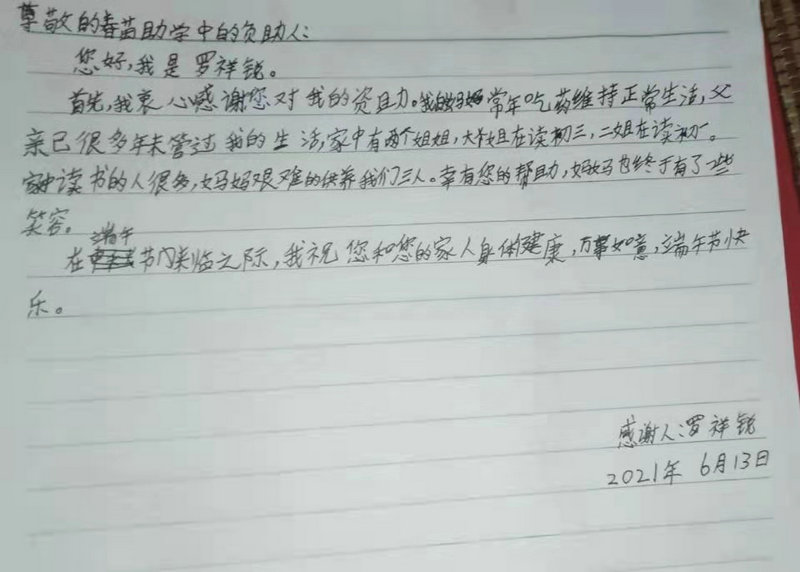 尊敬的春苗助学中的资助人:
您好,我是罗祥锐。
首先,我衷心感谢您对我的资助。我的妈妈常年吃药维持正常生活,父
亲已很多年未管过我的生活,家中有两个姐姐,大姐在读初三,二姐在读初一。
家中读书的人很多,妈妈艰难的供养我们三人。幸有您的帮助,妈妈也终于有了一些
笑容。
在端午节来临之际,我祝您和您的家人身体健康,万事如意,端午节快
乐。
感谢人:罗祥锐
2021年 6月13日